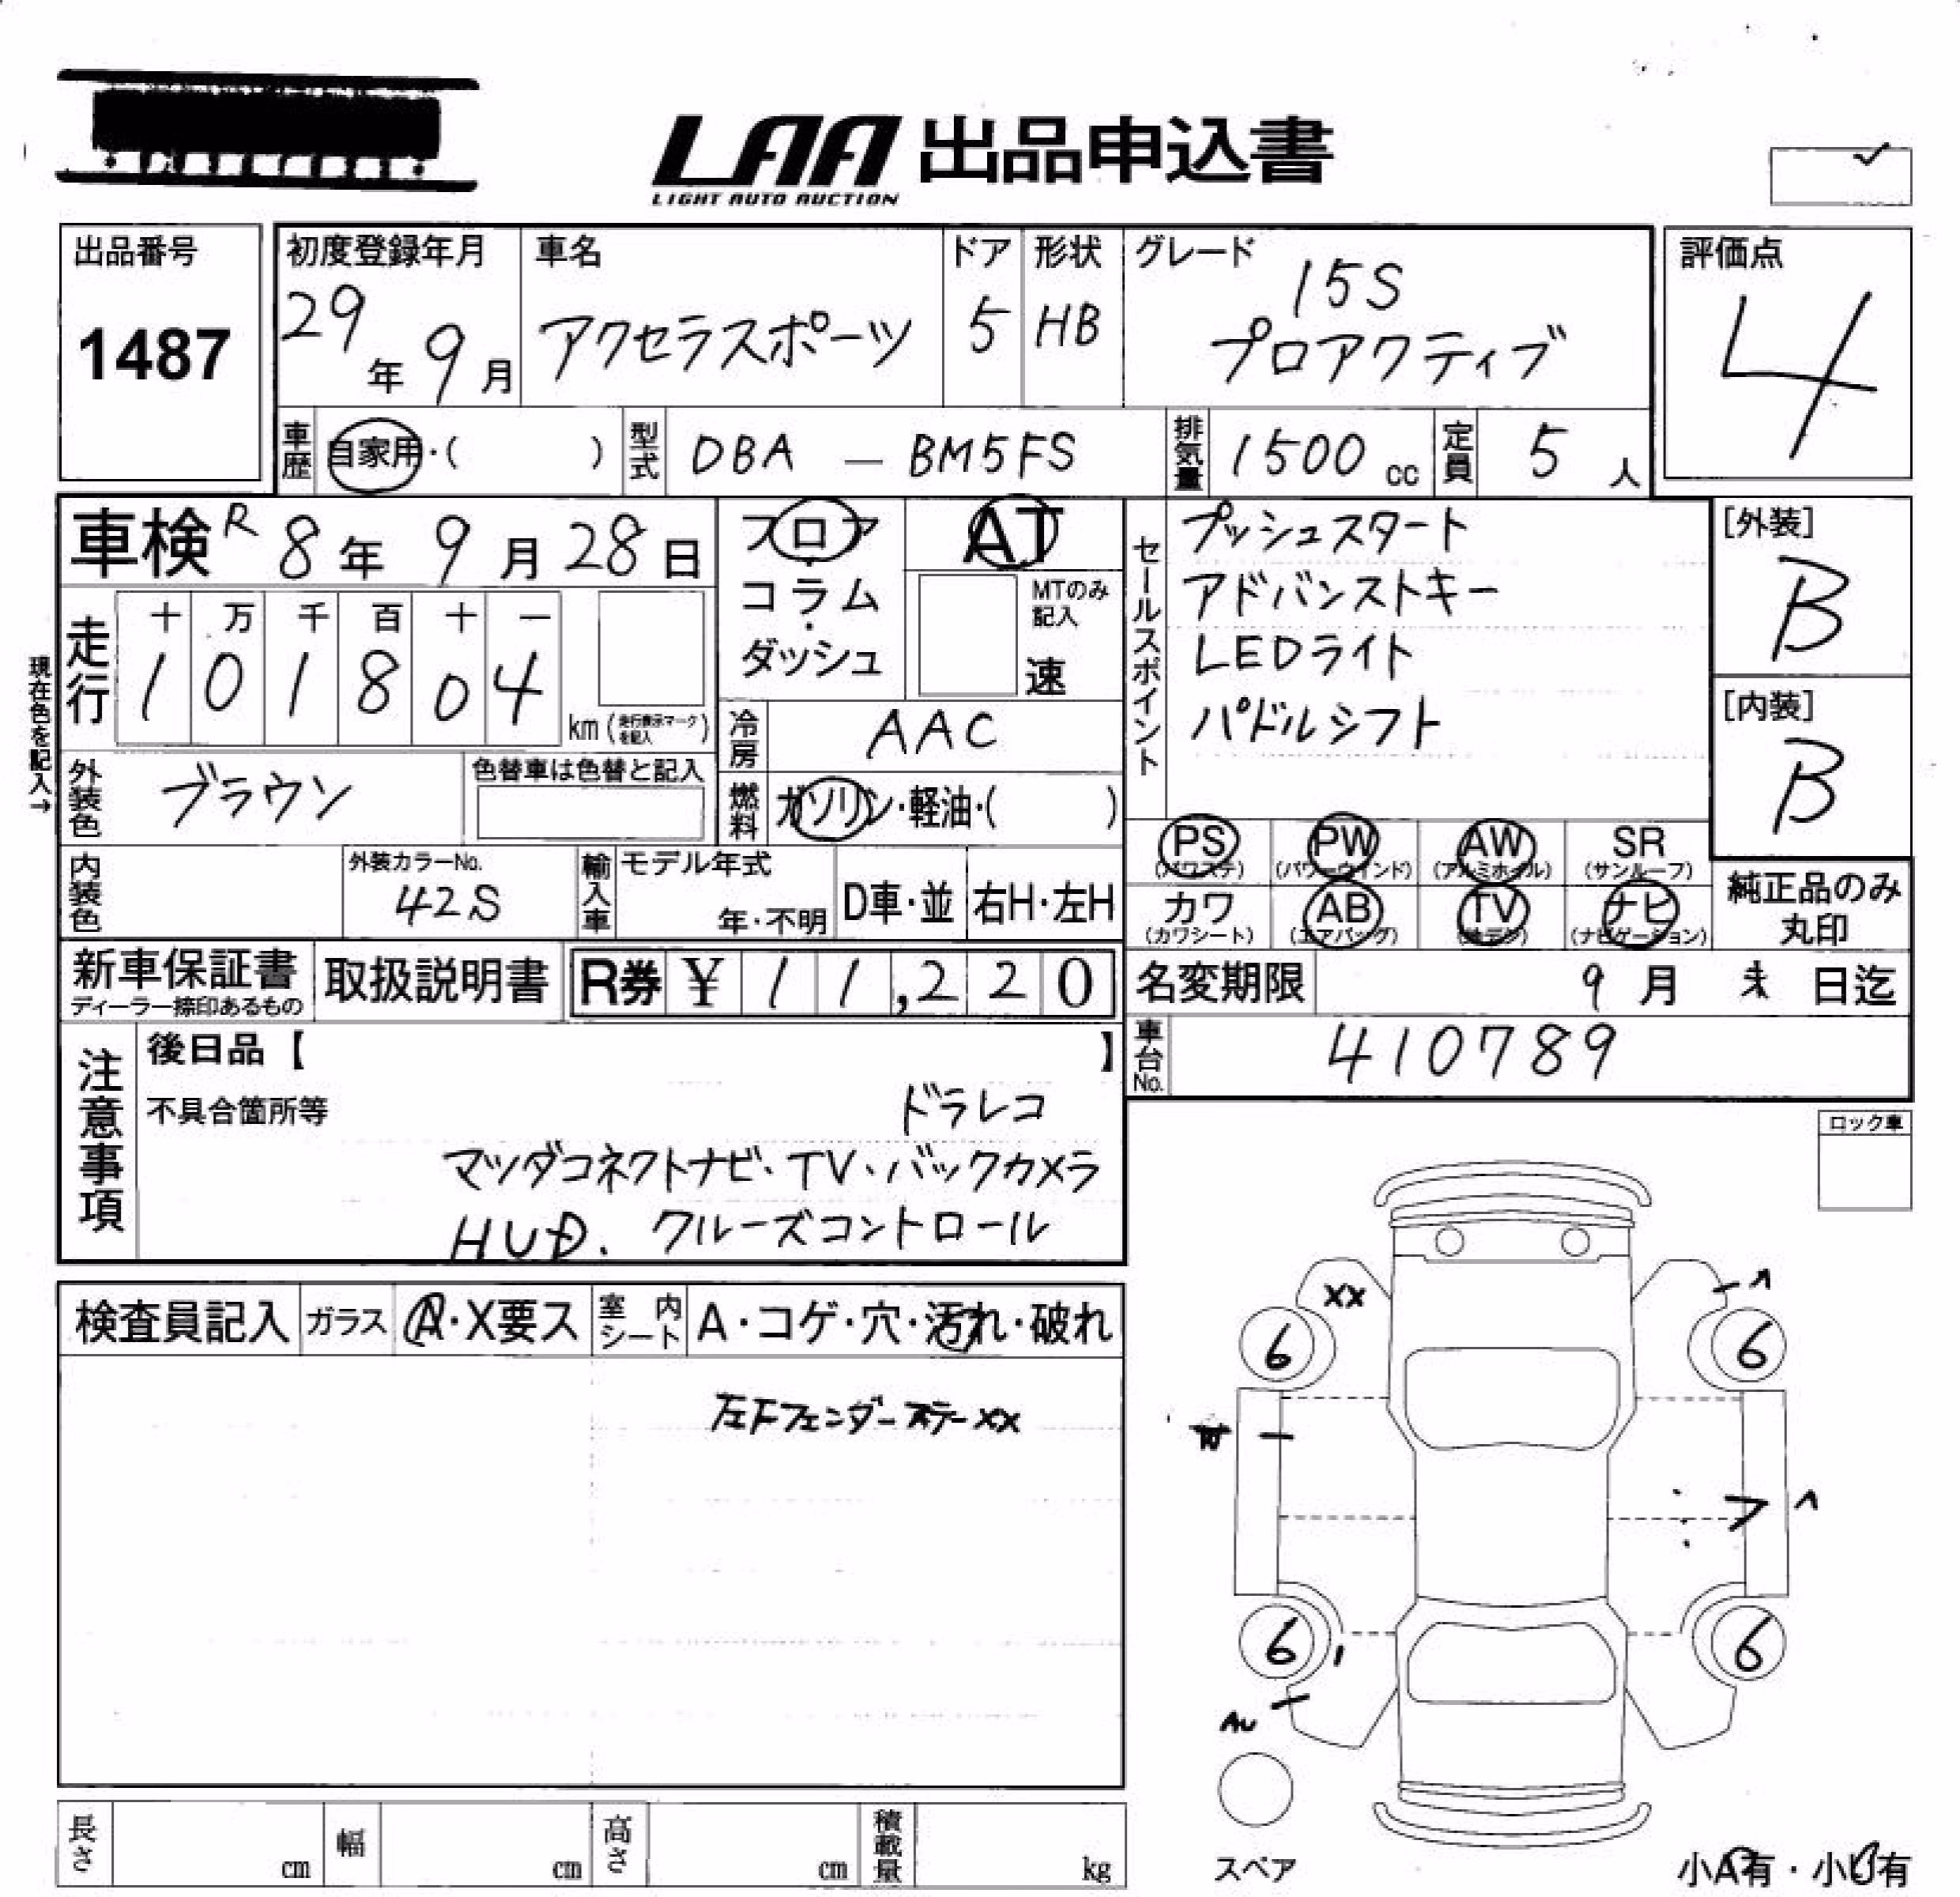 LAA 出品申込書
LIGHT AUTO AUCTION
出品番号
1487
初度登録年月
29年 9月
車名
アクセラスポーツ
ドア
5
形状
HB
グレード
15S
プロアクティブ
評価点
4
車歴
自家用・( )
型式
DBA — BM5FS
排気量
1500 cc
定員
5 人
車検 R 8年 9月 28日
フロア
・
コラム
・
ダッシュ
AT
MTのみ
記入
速
セールスポイント
プッシュスタート
アドバンストキー
LEDライト
パドルシフト
[外装]
B
[内装]
B
現在色を記入→
走行
十 万 千 百 十 一
1 0 1 8 0 4
km (走行表示マークを記入)
冷房
AAC
外装色
ブラウン
色替車は色替と記入
燃料
ガソリン・軽油・( )
PS
(パワステ)
PW
(パワーウインド)
AW
(アルミホイル)
SR
(サンルーフ)
カワ
(カワシート)
AB
(エアバッグ)
TV
ナビ
(ナビゲーション)
純正品のみ
丸印
内装色
外装カラーNo.
42S
輸入車
モデル年式
年・不明
D車・並
右H・左H
新車保証書
ディーラー捺印あるもの
取扱説明書
R券 ¥ 1 1,2 2 0
名変期限
9 月 末 日迄
車台No.
410789
注意事項
後日品【 】
不具合箇所等
ドラレコ
マツダコネクトナビ・TV・バックカメラ
HUD. クルーズコントロール
ロック車
検査員記入
ガラス
A・X要ス
室内シート
A・コゲ・穴・汚れ・破れ
左Fフェンダーステーxx
xx
6
6
6
6
AU
スペア
長さ
cm
幅
cm
高さ
cm
積載量
kg
小A有・小U有